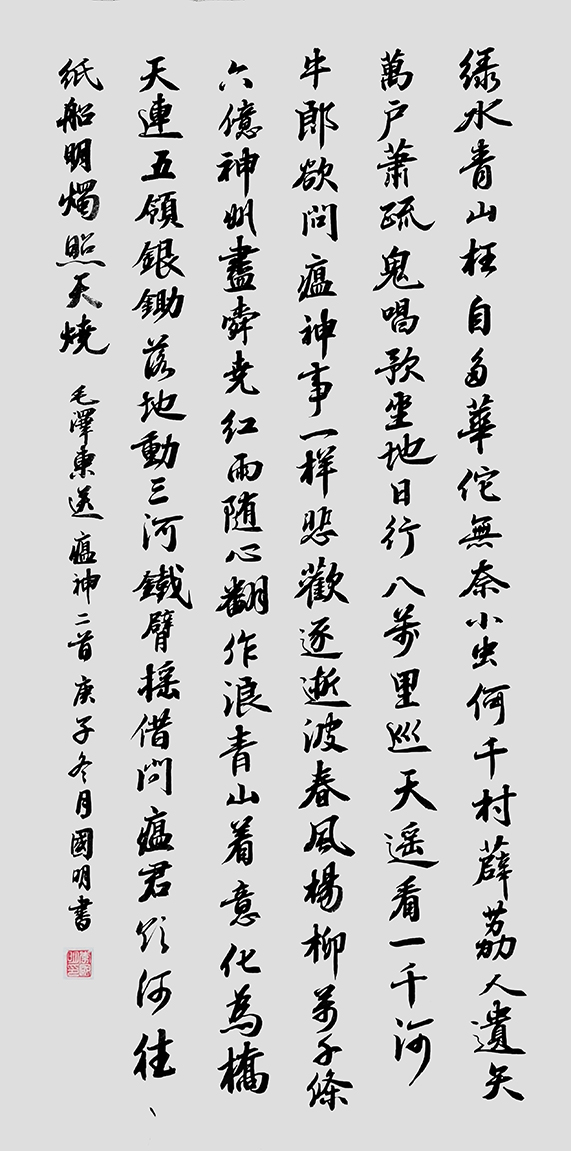 绿水青山枉自多華佗無奈小虫何千村薜荔人遺矢
萬户蕭疏鬼唱歌坐地日行八萬里巡天遥看一千河
牛郎欲問瘟神事一样悲歡逐逝波春風楊柳萬千條
六億神州盡舜尭红雨随心翻作浪青山着意化為橋
天連五領銀鋤落地動三河鐵臂摇借問瘟君欲何往
纸船明燭照天燒 毛澤東送瘟神二首庚子冬月國明書